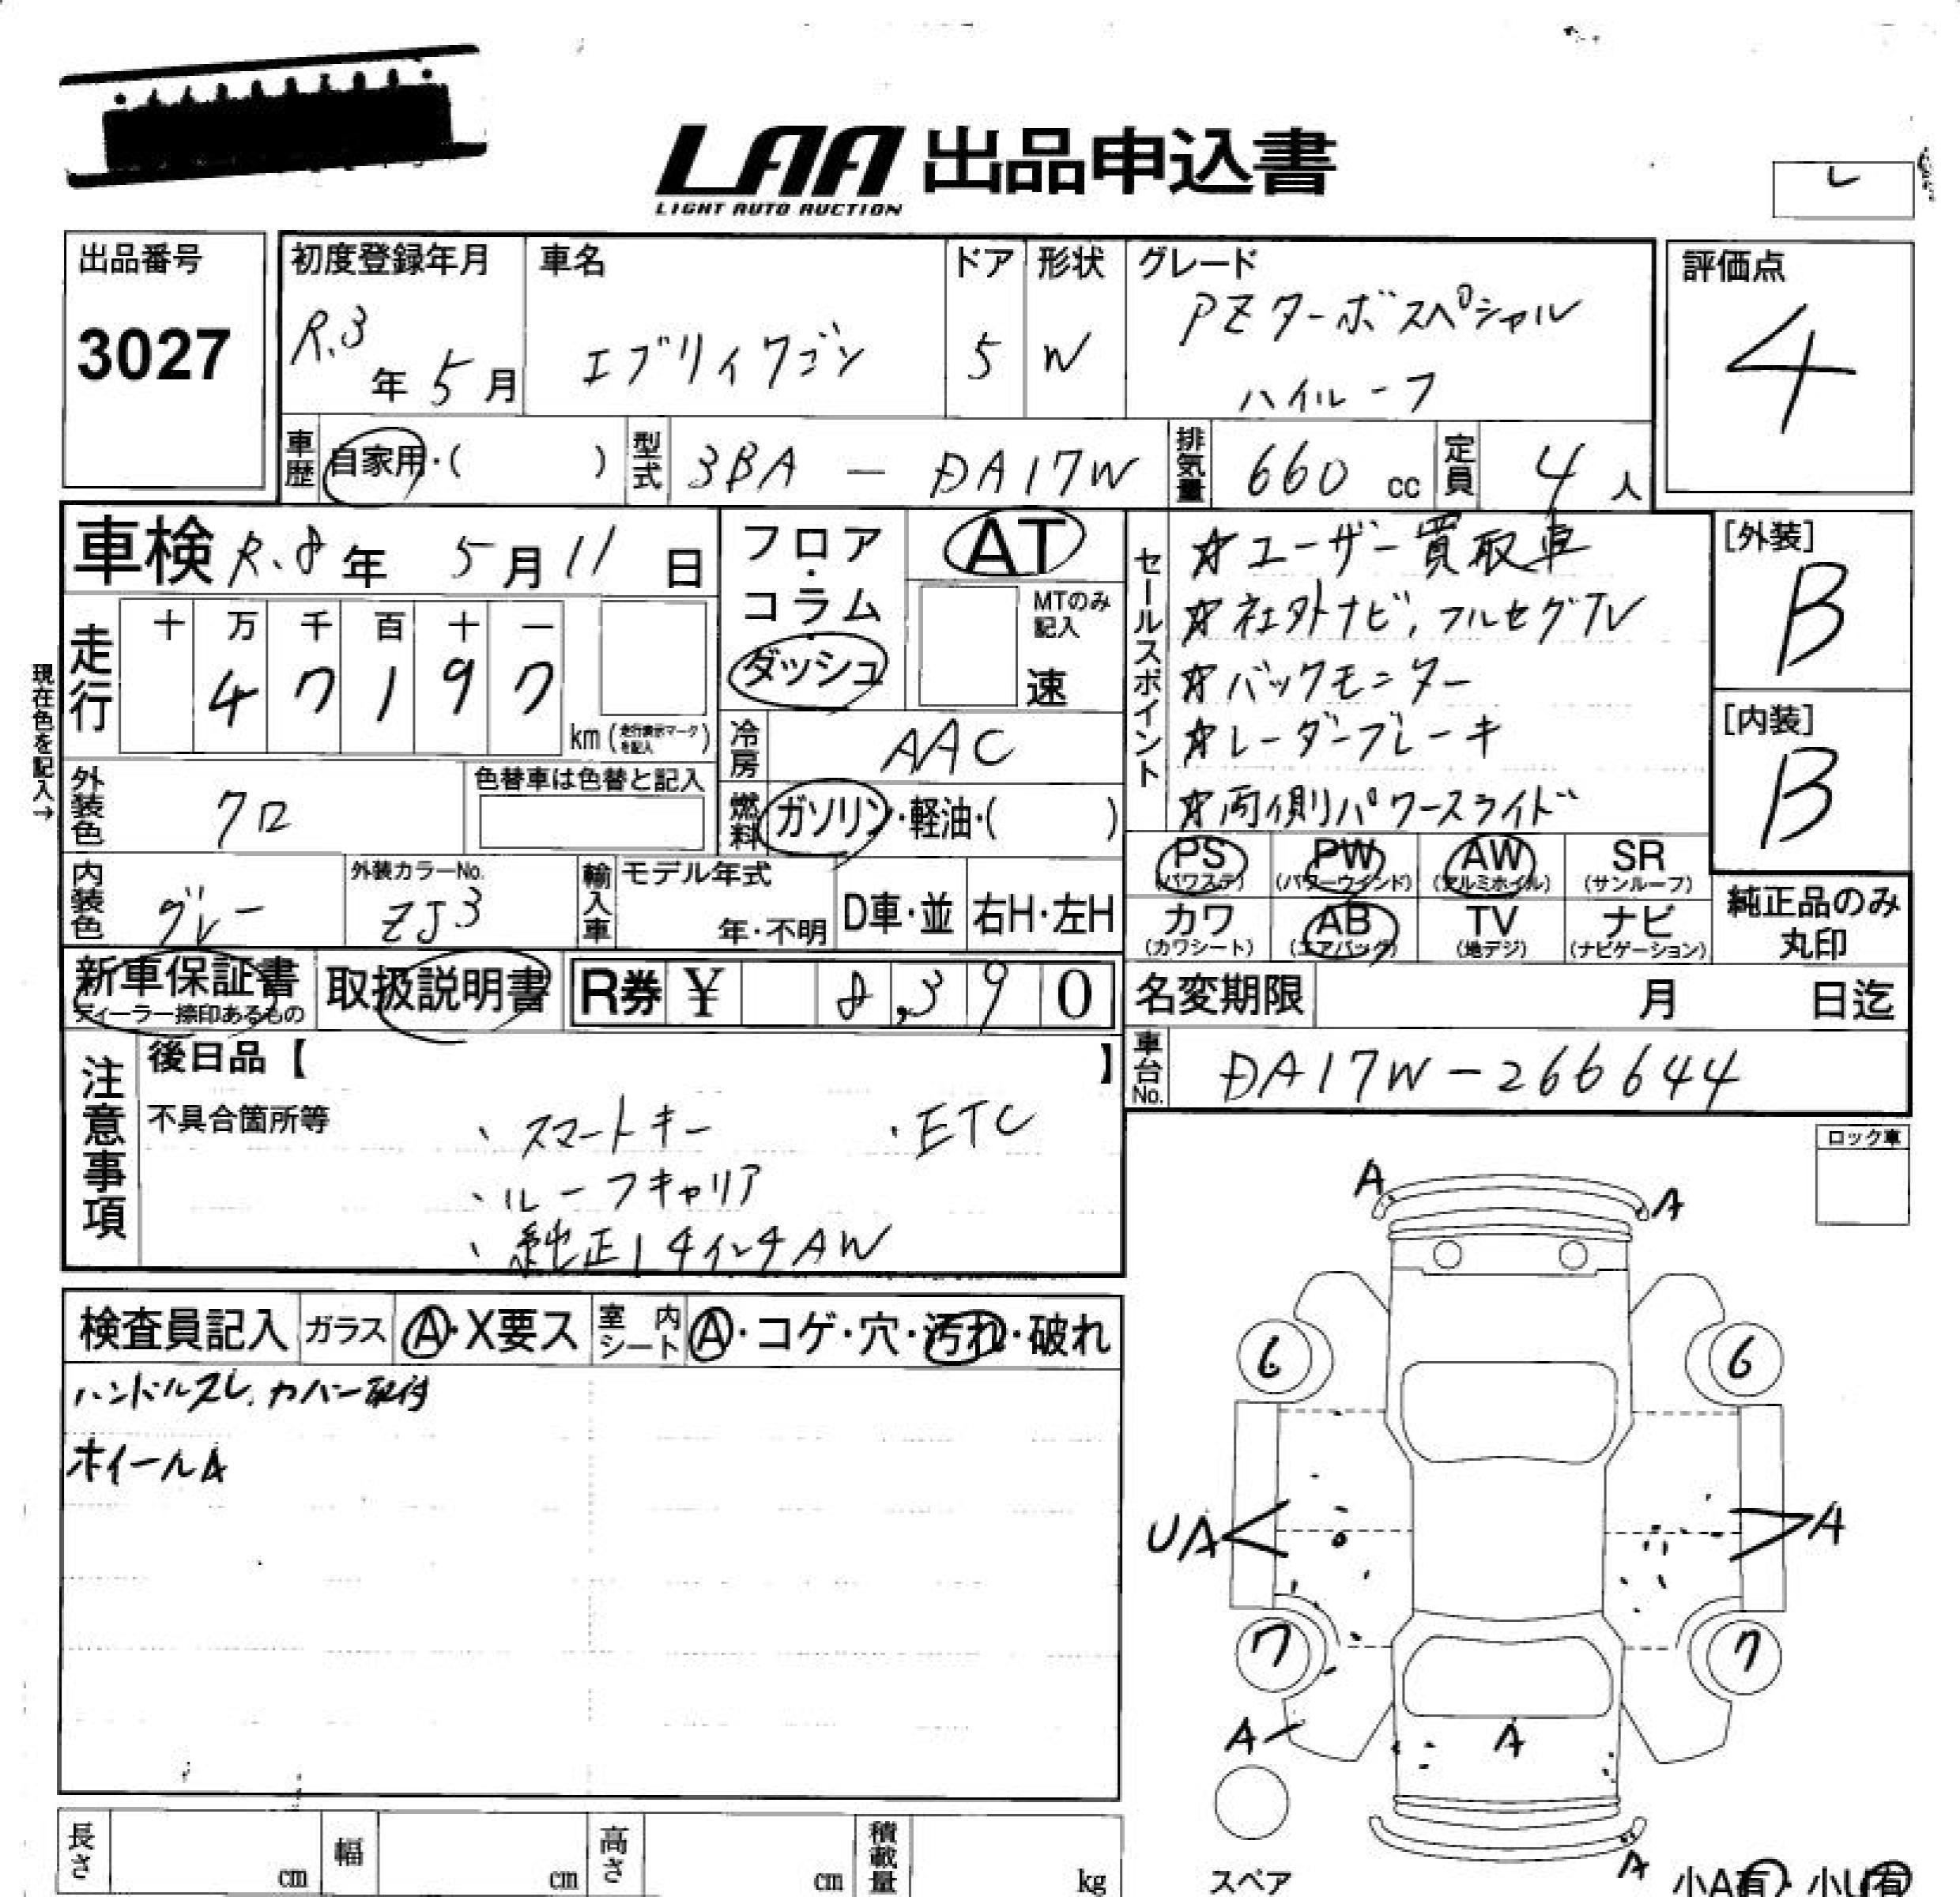 LAA 出品申込書
LIGHT AUTO AUCTION
出品番号
3027
初度登録年月
R.3年 5月
車名
エブリイワゴン
ドア
5
形状
W
グレード
PZターボスペシャル
ハイルーフ
評価点
4
車歴 自家用・( )
型式 3BA - DA17W
排気量 660 cc
定員 4人
車検 R.8年 5月11日
走行
十 万 千 百 十 一
4 7 1 9 7
km(走行表示マークを記入)
現在色を記入→
フロア・コラム・ダッシュ
AT
MTのみ記入
速
冷房 AAC
燃料 ガソリン・軽油・( )
外装色 クロ
色替車は色替と記入
内装色 グレー
外装カラーNo.
ZJ3
輸入車
モデル年式
年・不明
D車・並
右H・左H
セールスポイント
☆ユーザー買取車
☆社外ナビ,フルセグTV
☆バックモニター
☆レーダーブレーキ
☆両側パワースライド
[外装]
B
[内装]
B
PS (パワステ)
PW (パワーウインド)
AW (アルミホイル)
SR (サンルーフ)
カワ (カワシート)
AB (エアバッグ)
TV (地デジ)
ナビ (ナビゲーション)
純正品のみ
丸印
新車保証書
ディーラー捺印あるもの
取扱説明書
R券 ¥ 8,390
名変期限 月 日迄
車台No. DA17W-266644
注意事項
後日品【 】
不具合箇所等
、スマートキー ・ETC
、ルーフキャリア
、純正14インチAW
ロック車
検査員記入
ガラス A・X要ス
室内シート A・コゲ・穴・汚れ・破れ
ハンドルスレ、カバー取付
ホイールA
A A
6 6
UA A
7 7
A A
A
スペア
小A有・小U有
長さ cm
幅 cm
高さ cm
積載量 kg